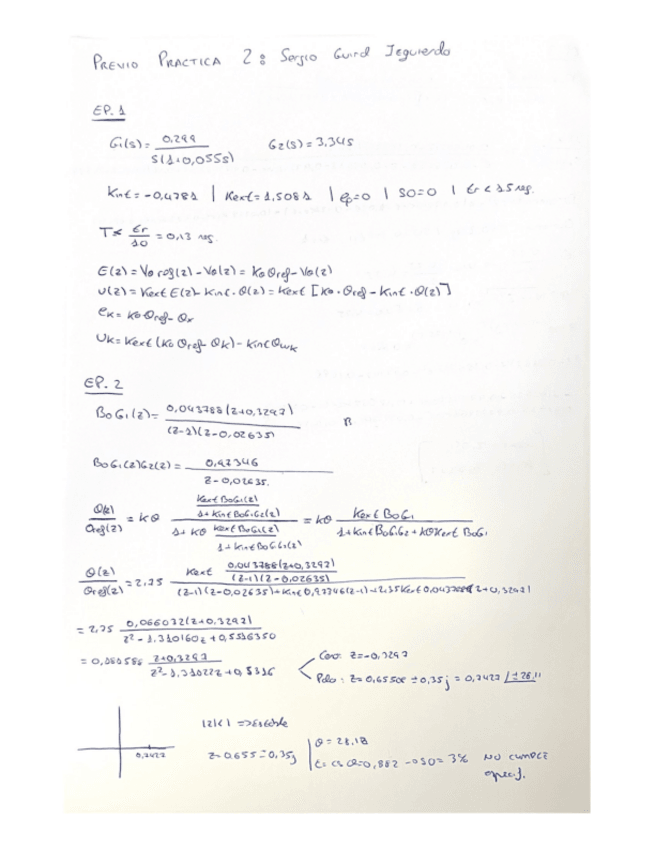 PREVIO PRACTICA 2: Sergio
EP. 1
G1(s) = 0,299 / s(1+0,055s) G2(s) = 3,34s
Kint = -0,4781 | Kext = 1,5081 | ep=0 | SO=0 | tr < 1.5 seg.
T ≤ tr / 10 = 0,13 seg.
E(z) = Vθ ref(z) - Vθ(z) = Kθ θref - Vθ(z)
U(z) = Kext E(z) - Kint · θ(z) = Kext [Kθ · θref - Kint · θ(z)]
eK = Kθ θref - θK
UK = Kext (Kθ θref - θK) - Kint θωK
EP. 2
B0G1(z) = 0,043788(z+0,3297) / (z-1)(z-0,02635)
B0G1(z)G2(z) = 0,97346 / z-0,02635.
θ(z) / θref(z) = Kθ (Kext B0G1(z) / 1+Kint B0G1G2(z)) / (1+Kθ Kext B0G1(z) / 1+Kint B0G1G2(z)) = Kθ Kext B0G1 / 1+Kint B0G1G2 + KθKext B0G1
θ(z) / θref(z) = 2,75 Kext 0,043788(z+0,3297) / (z-1)(z-0,02635) / (z-1)(z-0,02635)+Kint 0,97346(z-1)+2,75Kext 0,043788(z+0,3297)
= 2,75 0,066032(z+0,3297) / z² - 1.310160z + 0,5516350
= 0,080586 z+0,3297 / z² - 1,31022z + 0,5516
Cero: z=-0,3297
Polo: z=0,6550 ± 0,35j = 0,7427 /±28,11
0,7427
|z|<1 => Estable
z=0.655±0,35j
θ = 28.18
ξ = cos θ=0,882 -> SO= 3% NO CUMPLE
especif.